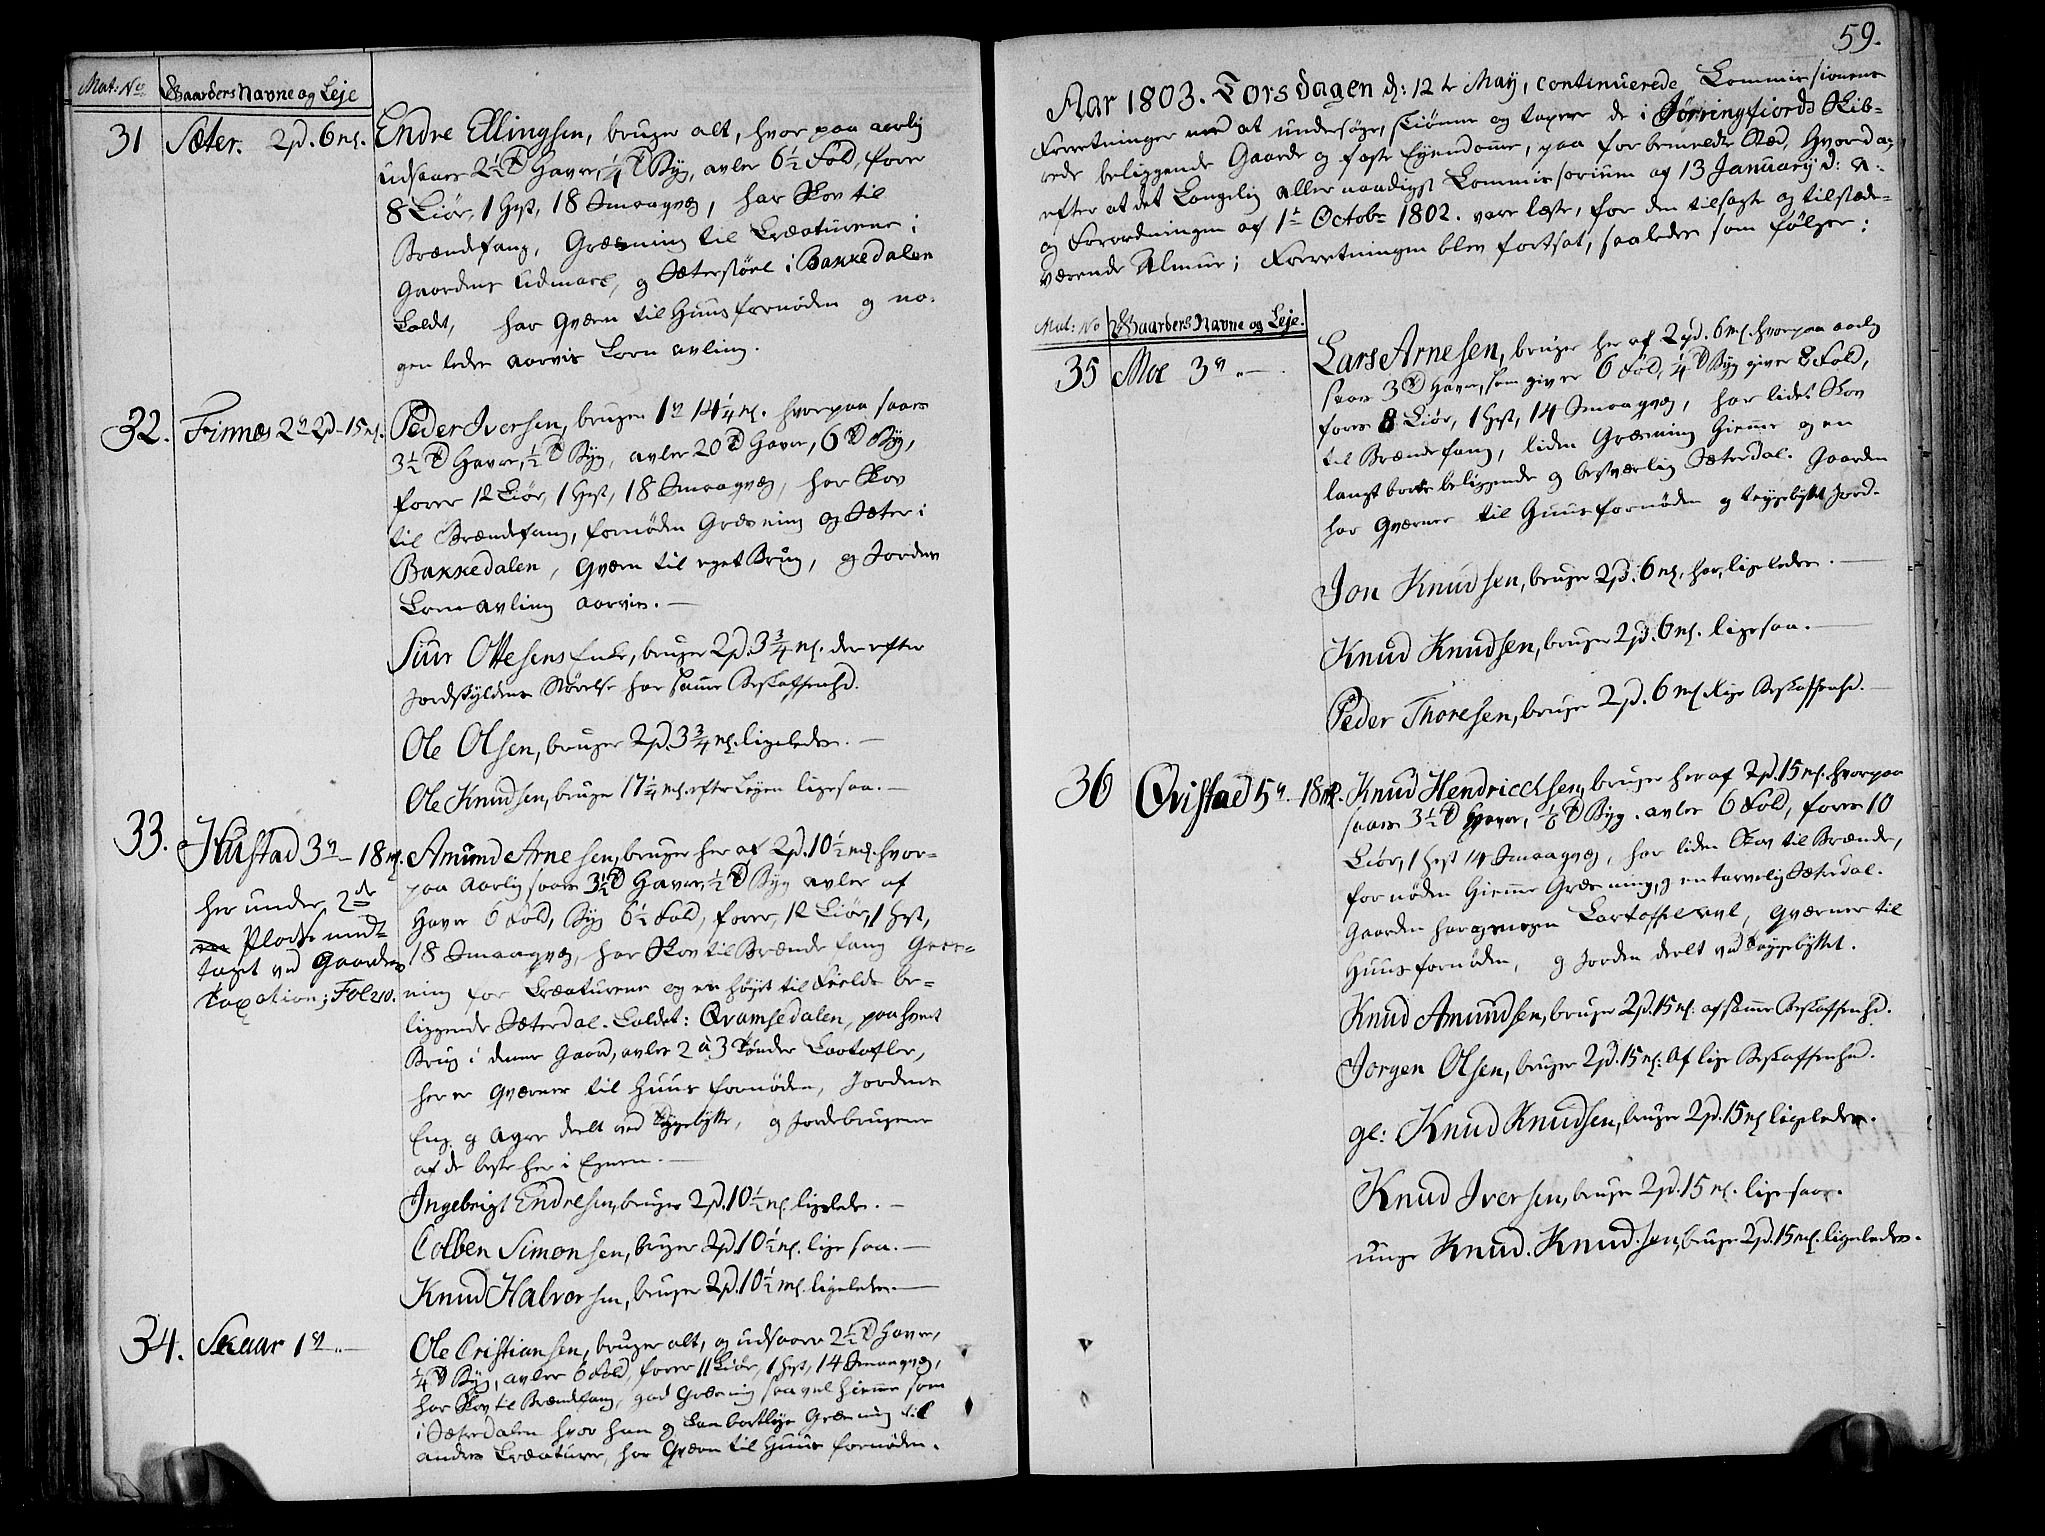 Mat: No Gaarders Navne og Leje
31 Sæter. 2pd. 6 mk. Endre Ellingsen, bruger alt, hvor paa aarlig
udsaaes 2½ Td Haver, ¼ Td Byg, avler 6½ Fold, foder
8 Kiør, 1 Hest, 18 Smaaqvæg, har Skov til
Brændefang, Græsning til Creaturene i
Gaardens Udmark, og Sæterstøel i Bakkedalen
kaldt, har Qværn til Huus fornøden og no-
genledes aarvis Korn avling.
32. Finnæs 2 v 2pd - 15 mk. Peder Iversen, bruger 1 v 14¼ mk. hvorpaa saaes
3½ Td Haver, ½ Td Byg, avler 20 Td Haver, 6 Td Byg,
foder 12 Kiør, 1 Hest, 18 Smaaqvæg, har Skov
til Brændefang, fornøden Græsning og Sæter i
Bakkedalen, Qværn til eget Brug, og Jordens
Kornavling aarvis. —
Siur Ottesens Enke, bruger 2pd. 3¾ mk. der efter
Jordskyldens Størelse har samme Beskaffenhd.
Ole Olsen, bruger 2pd. 3¾ mk. ligeledes. —
Ole Knudsen, bruger 17¼ mk. efter Lejen ligesaa. —
33. Hustad 3 v - 18 mk. Amund Arnesen, bruger her af 2pd. 10½ mk. hvor-
her under 2de paa aarlig saaes 3½ Td Haver ½ Td Byg avler af
Pladse midt Haver 6 Fold, Byg 6½ Fold, foder, 12 Kiør, 1 Hest,
taget ved Gaardens 18 Smaaqvæg, har Skov til Brændefang Græs-
Taxation; Fol 210. ning for Creaturene og en høyt til Fields be-
liggende Sæterdal. Kaldet: Qvamsedalen, paa hvert
Brug i denne Gaard, avles 2 à 3 Tønder Kartofler,
her er Qværner til Huus fornøden, Jordene
Eng og Ager deelt ved Teigebytte, og Jordebrugene
af de beste her i Egnen. —
Ingebrigt Endresen, bruger 2pd. 10½ mk. ligeledes. —
Colben Simonsen, bruger 2pd. 10½ mk. lige saa. —
Knud Halvorsen, bruger 2pd. 10½ mk. ligeledes —
34. Skaar 1 v „ — Ole Cristiansen, bruger alt, og udsaaer 2½ Td Haver,
¼ Td Byg, avler 6 Fold, foder 11 Kiør, 1 Hest, 14 Smaaqvæg,
har Skov til Brændefang, god Græsning saavel hiemme som
i Sæterdalen hvor han og kan bortleye Græsning til
andres Creaturer, har Qværn til Huus fornøden.
59.
Aar 1803. Torsdagen d: 12te May, continuerede Commissionens
Forretninger med at undersøge, skiønne og taxere de i Jørringfiords Skib-
rede beliggende Gaarde og faste Eyendomme, paa forbemeldte Stæd, Hvorda
efter at det Kongelig allernaadigst Commissorium af 13 January d: A:
og Forordningen af 1te Octobr 1802. vare læste, for den tilsagte og tilstæde-
værende Almue; Forretningen blev fortsat, saaledes som følger:
Mat: No Gaarders Navne og Leje.
35 Moe 3 v „ — Lars Arnesen, bruger her af 2pd. 6 mk. hvorpaa aarlig
saaes 3 Td Haver, som giver 6 Fold, ¼ Td Byg giver 8 Fold,
foder 8 Kiør, 1 Hest, 14 Smaaqvæg, har lidet Skov
til Brændefang, liden Græsning Hiemme og en
langt borte beliggende og besværlig Sæterdal. Gaarden
har Qværner til Huus fornøden og teygebyttet Jord.
Jon Knudsen, bruger 2pd. 6 mk, har, ligeledes. —
Knud Knudsen, bruger 2pd. 6 mk. ligesaa. —
Peder Thoresen, bruger 2pd. 6 mk. lige Beskaffenhd. —
36 Qvistad 5 v - 18 mk. Knud Hendricksen, bruger her af 2pd. 15 mk. hvorpaa
saaes 3½ Td Haver, ⅛ Td Byg. avler 6 Fold, foder 10
Kiør, 1 Hest 14 Smaaqvæg, har liden Skov til Brænde,
fornøden Hiemme Græsning, og en tarvelig Sæterdal.
Gaarden har og nogen Kartoffel avl, Qværner til
Huus fornøden, og Jorden deelt ved Teygebyttet.
Knud Amundsen, bruger 2pd. 15 mk. af samme Beskaffenhd.
Jørgen Olsen, bruger 2pd. 15 mk: Af lige Beskaffenhd.
gl: Knud Knudsen, bruger 2pd. 15 mk ligeledes.
Knud Iversen, bruger 2pd. 15 mk. ligesaa.
unge Knud Knudsen, bruger 2pd. 15 mk. ligeledes.